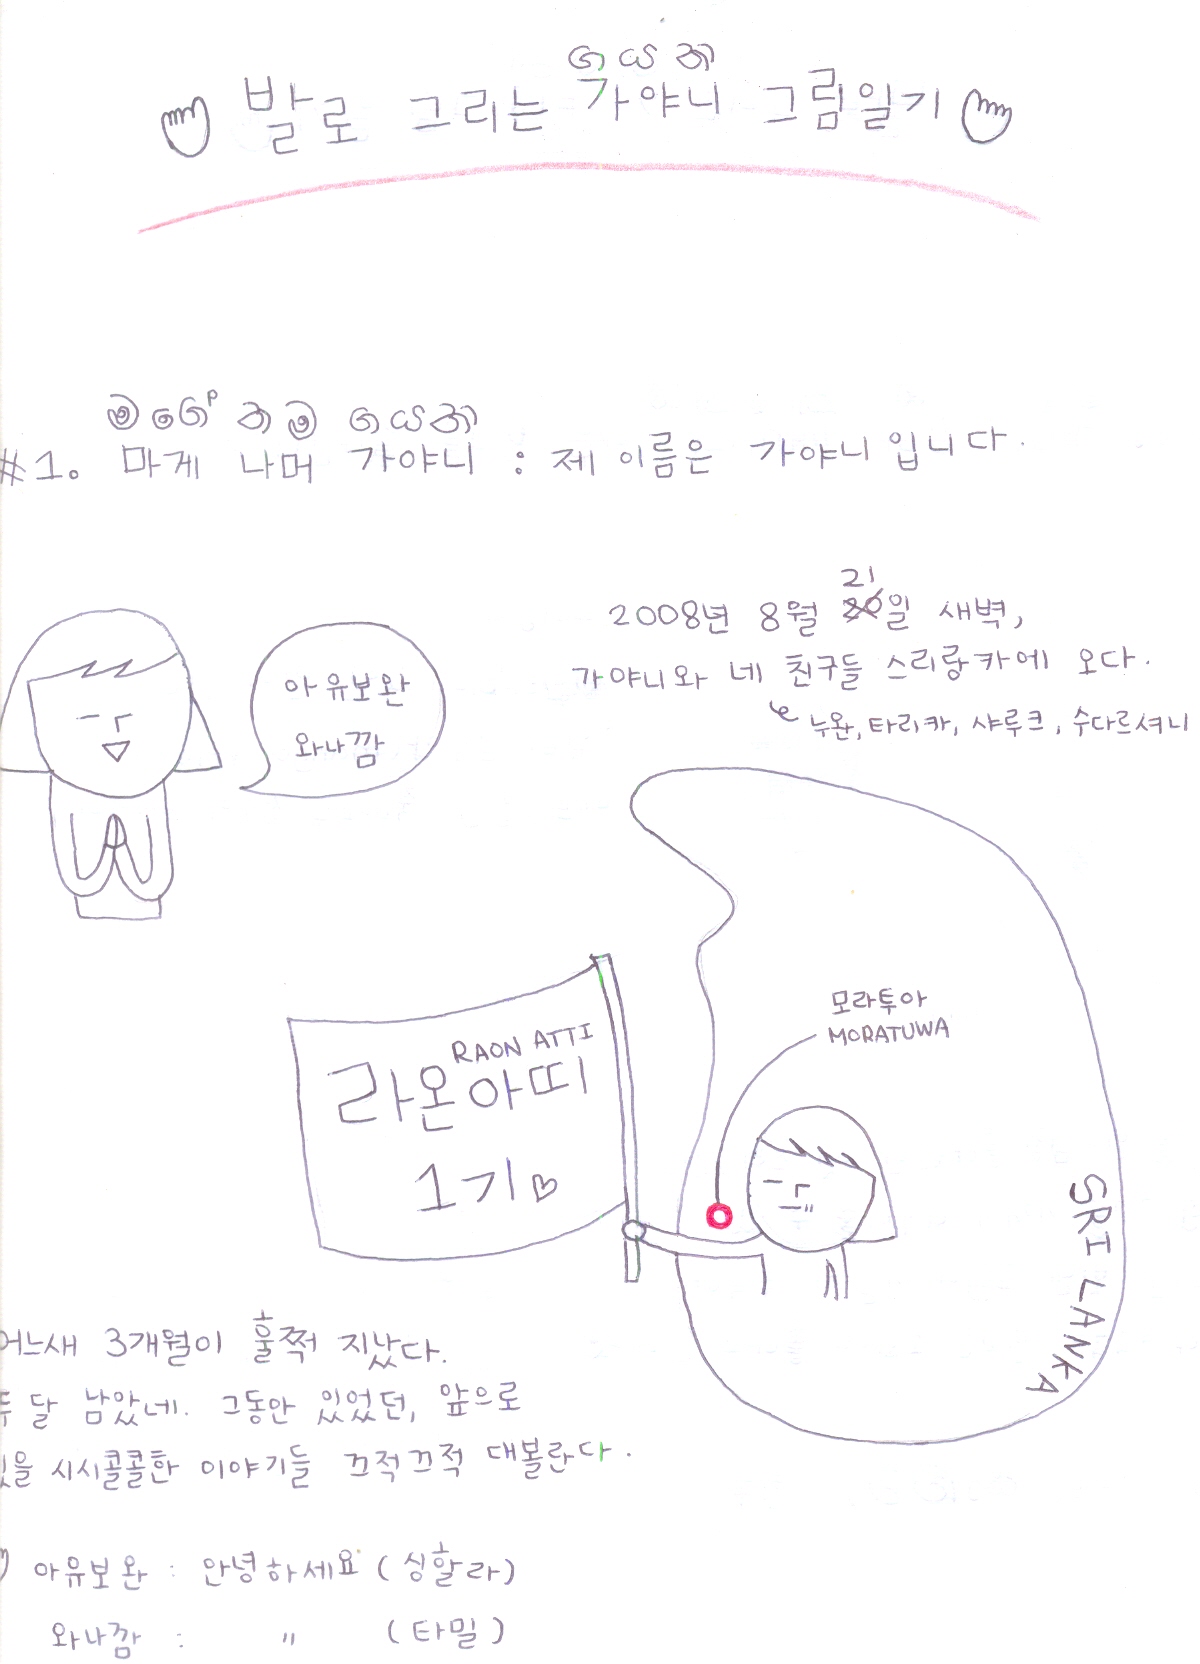 ගයනි
발로 그리는 가야니 그림일기
මගේ නම ගයනි
#1. 마게 나머 가야니 : 제 이름은 가야니입니다.
아유보완
와나깜
2008년 8월 21일 새벽,
가야니와 네 친구들 스리랑카에 오다.
누완, 타리카, 샤루크, 수다르셔니
모라투아
MORATUWA
RAON ATTI
라온아띠
1기♡
SRI LANKA
어느새 3개월이 훌쩍 지났다.
두 달 남았네. 그동안 있었던, 앞으로
있을 시시콜콜한 이야기들 끄적끄적 대볼란다.
아유보완 : 안녕하세요 (싱할라)
와나깜 : " (타밀)